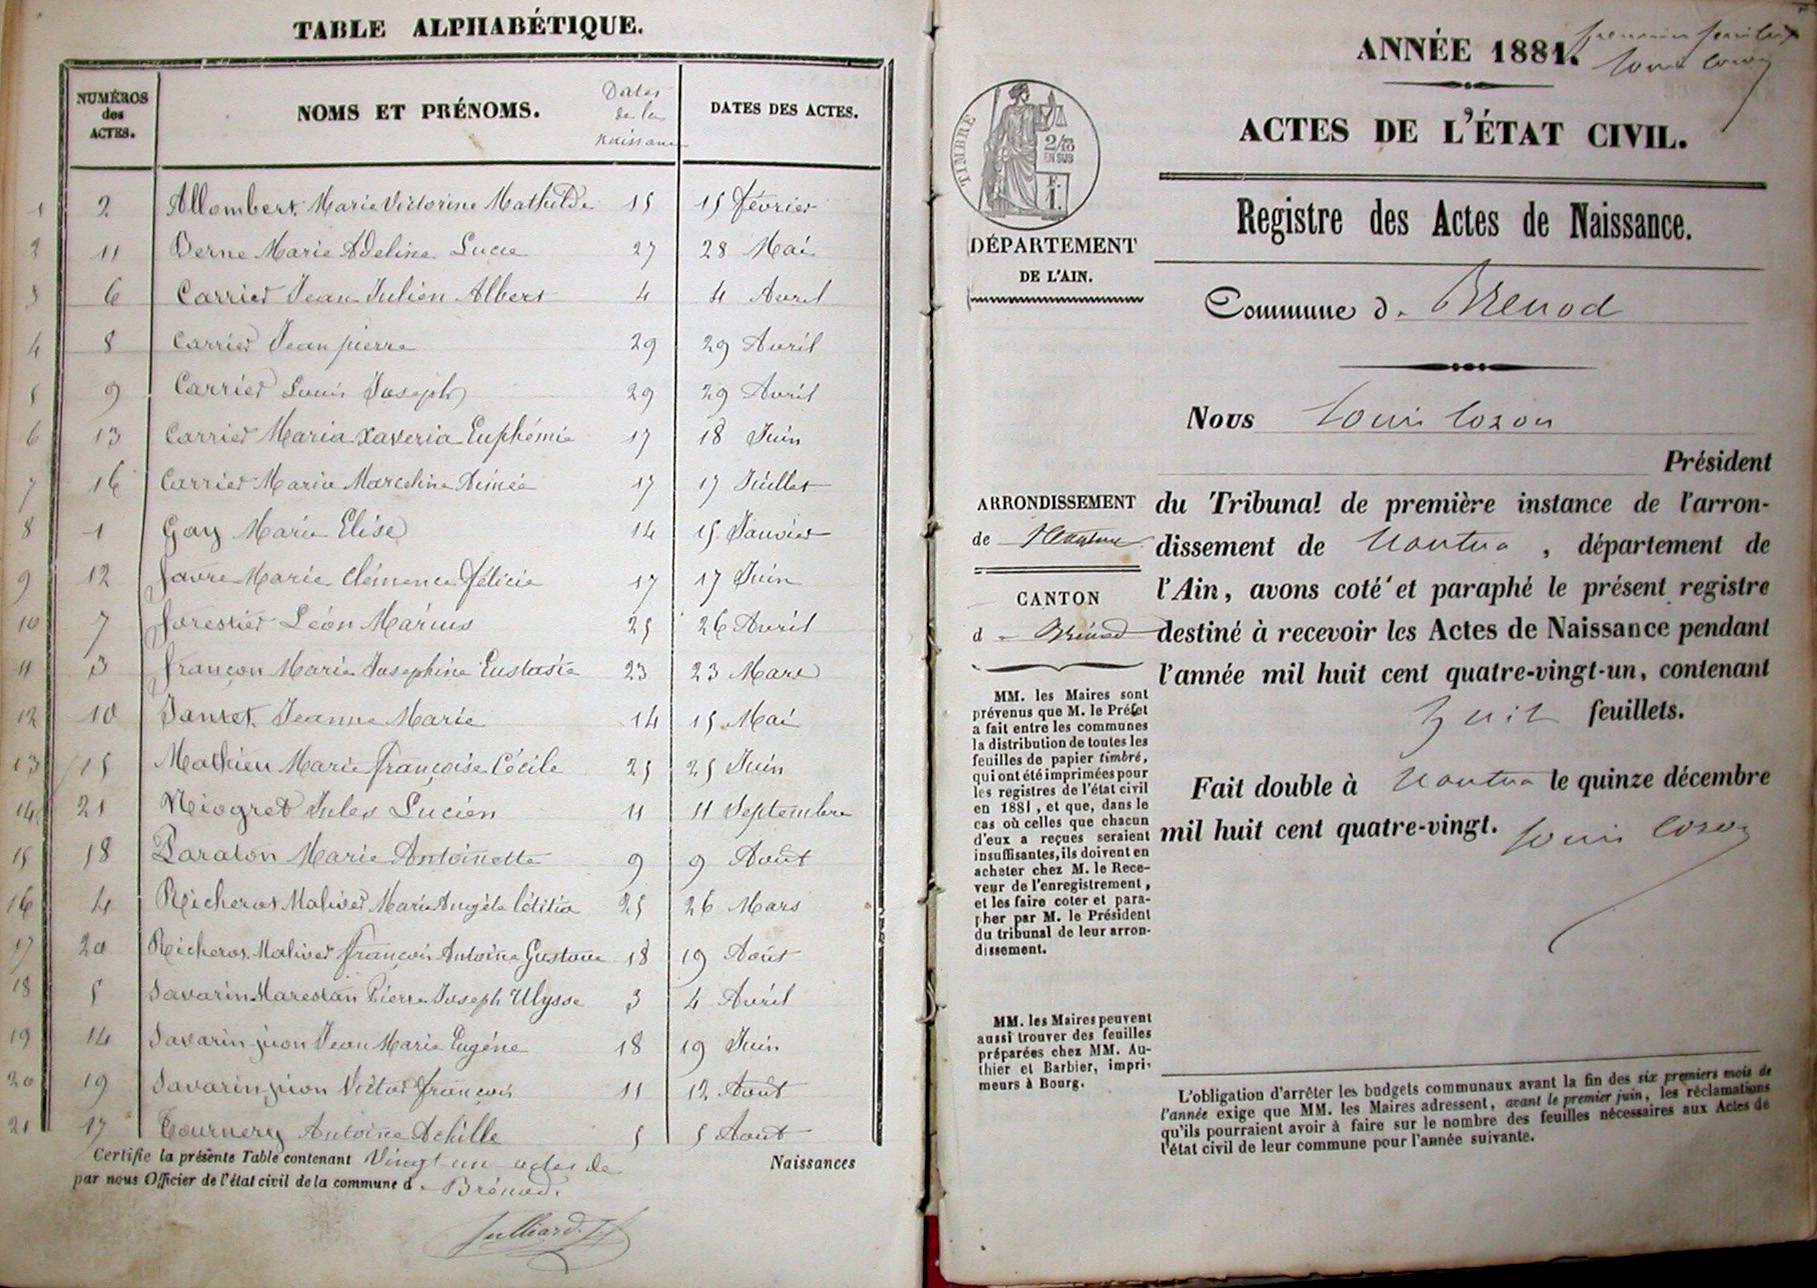 TABLE ALPHABÉTIQUE.
NUMÉROS des ACTES. NOMS ET PRÉNOMS. Dates de la naissance DATES DES ACTES.
1 2 Allombert Marie Victorine Mathilde 15 15 février
2 11 Berne Marie Adeline Lucie 27 28 Mai
3 6 Carrier Jean Julien Albert 4 4 Avril
4 8 Carrier Jean pierre 29 29 Avril
5 9 Carrier Louis Joseph 29 29 Avril
6 13 Carrier Maria Xaveria Euphémie 17 18 Juin
7 16 Carrier Maria Marceline Aimée 17 17 Juillet
8 1 Gay Marie Elise 14 15 Janvier
9 12 favre Marie Clémence félicie 17 17 Juin
10 7 forestier Léon Marius 25 26 Avril
11 3 françon Marie Josephine Eustasie 23 23 Mars
12 10 Jantet Jeanne Marie 14 15 Mai
13 15 Mathieu Marie françoise Cécile 25 25 Juin
14 21 Niogret Jules Lucien 11 11 Septembre
15 18 Paraton Marie Antoinette 9 9 Août
16 4 Richerot Malivet Marie Angèle létitia 25 26 Mars
17 20 Richerot Malivet françois Antoine Gustave 18 19 Août
18 5 Savarin Marestan Pierre Joseph Ulysse 3 4 Avril
19 14 Savarin-juon Jean Marie Eugène 18 19 Juin
20 19 Savarin juon Victor françois 11 12 Août
21 17 Tournery Antoine Achille 5 5 Août
Certifie la présente Table contenant Vingt un actes de Naissances
par nous Officier de l'état civil de la commune d e Brénod.
Julliard
premier feuillet
Louis Cozon
ANNÉE 1881.
ACTES DE L'ÉTAT CIVIL.
TIMBRE
2/10 EN SUS
F. 1.
DÉPARTEMENT
DE L'AIN.
Registre des Actes de Naissance.
Commune d e Brenod
Nous Louis Cozon
Président
ARRONDISSEMENT
de Nantua
CANTON
d e Brénod
du Tribunal de première instance de l'arron-
dissement de Nantua, département de
l'Ain, avons coté et paraphé le présent registre
destiné à recevoir les Actes de Naissance pendant
l'année mil huit cent quatre-vingt-un, contenant
huit feuillets.
Fait double à Nantua le quinze décembre
mil huit cent quatre-vingt.
Louis Cozon
MM. les Maires sont
prévenus que M. le Préfet
a fait entre les communes
la distribution de toutes les
feuilles de papier timbré,
qui ont été imprimées pour
les registres de l'état civil
en 1881, et que, dans le
cas où celles que chacun
d'eux a reçues seraient
insuffisantes, ils doivent en
acheter chez M. le Rece-
veur de l'enregistrement,
et les faire coter et para-
pher par M. le Président
du tribunal de leur arron-
dissement.
MM. les Maires peuvent
aussi trouver des feuilles
préparées chez MM. Au-
thier et Barbier, impri-
meurs à Bourg.
L'obligation d'arrêter les budgets communaux avant la fin des six premiers mois de
l'année exige que MM. les Maires adressent, avant le premier juin, les réclamations
qu'ils pourraient avoir à faire sur le nombre des feuilles nécessaires aux Actes de
l'état civil de leur commune pour l'année suivante.